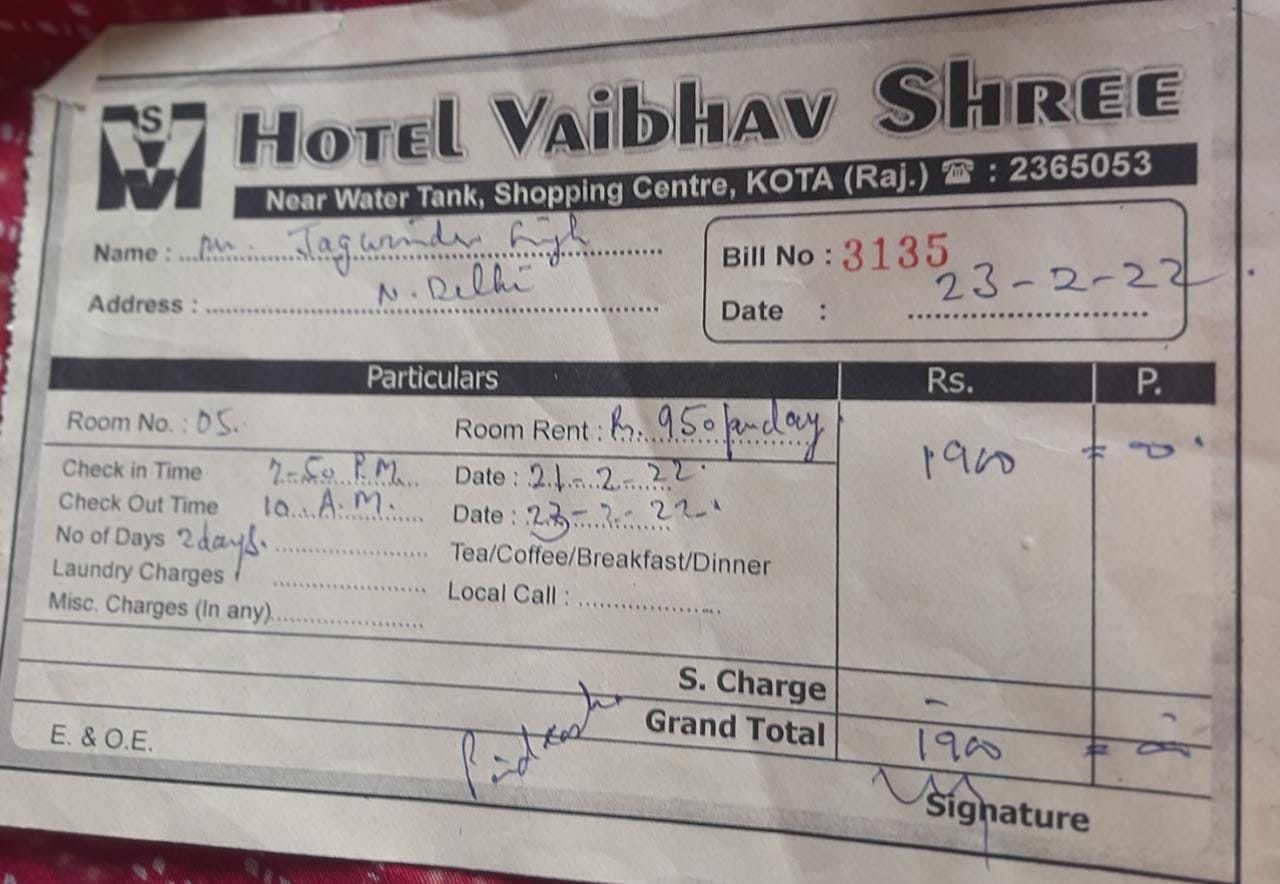 SVM
HOTEL VAIBHAV SHREE
Near Water Tank, Shopping Centre, KOTA (Raj.) ☎ : 2365053
Name : Mr. Jagwinder Singh
Address : N. Delhi
Bill No : 3135
Date : 23-2-22
Particulars Rs. P.
Room No. : 05. Room Rent : Rs. 950/per day 1900 = 00
Check in Time 7-50 P.M. Date : 21-2-22
Check Out Time 10 A.M. Date : 23-2-22
No of Days 2 days. Tea/Coffee/Breakfast/Dinner
Laundry Charges Local Call :
Misc. Charges (In any)
S. Charge - -
Grand Total 1900 = 00
E. & O.E. Paid Cash
Signature